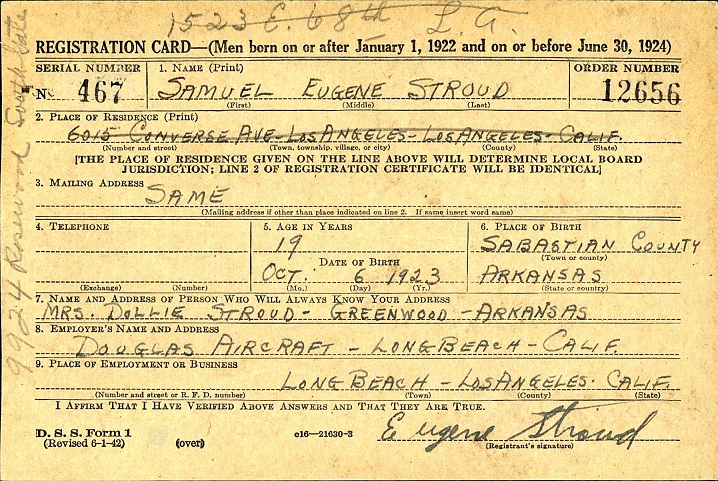 1523 E. 68th L.A.
REGISTRATION CARD—(Men born on or after January 1, 1922 and on or before June 30, 1924)
SERIAL NUMBER
1. NAME (Print)
ORDER NUMBER
No 467
SAMUEL EUGENE STROUD
12656
(First) (Middle) (Last)
2. PLACE OF RESIDENCE (Print)
6015 CONVERSE AVE - LOS ANGELES - LOS ANGELES - CALIF.
(Number and street) (Town, township, village, or city) (County) (State)
[THE PLACE OF RESIDENCE GIVEN ON THE LINE ABOVE WILL DETERMINE LOCAL BOARD
JURISDICTION; LINE 2 OF REGISTRATION CERTIFICATE WILL BE IDENTICAL]
3. MAILING ADDRESS
SAME
(Mailing address if other than place indicated on line 2. If same insert word same)
4. TELEPHONE
(Exchange) (Number)
5. AGE IN YEARS
19
DATE OF BIRTH
OCT. 6 1923
(Mo.) (Day) (Yr.)
6. PLACE OF BIRTH
SABASTIAN COUNTY
(Town or county)
ARKANSAS
(State or country)
7. NAME AND ADDRESS OF PERSON WHO WILL ALWAYS KNOW YOUR ADDRESS
MRS. DOLLIE STROUD - GREENWOOD - ARKANSAS
8. EMPLOYER'S NAME AND ADDRESS
DOUGLAS AIRCRAFT - LONG BEACH - CALIF.
9. PLACE OF EMPLOYMENT OR BUSINESS
LONG BEACH - LOS ANGELES. CALIF.
(Number and street or R. F. D. number) (Town) (County) (State)
I AFFIRM THAT I HAVE VERIFIED ABOVE ANSWERS AND THAT THEY ARE TRUE.
D. S. S. Form 1
(Revised 6-1-42) (over) c16—21630-3
Eugene Stroud
(Registrant's signature)
9924 Rosewood South Gate